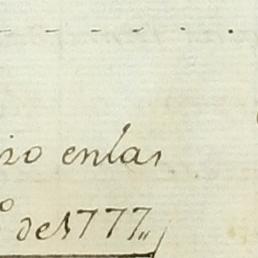 so enlas
o de 1777,,